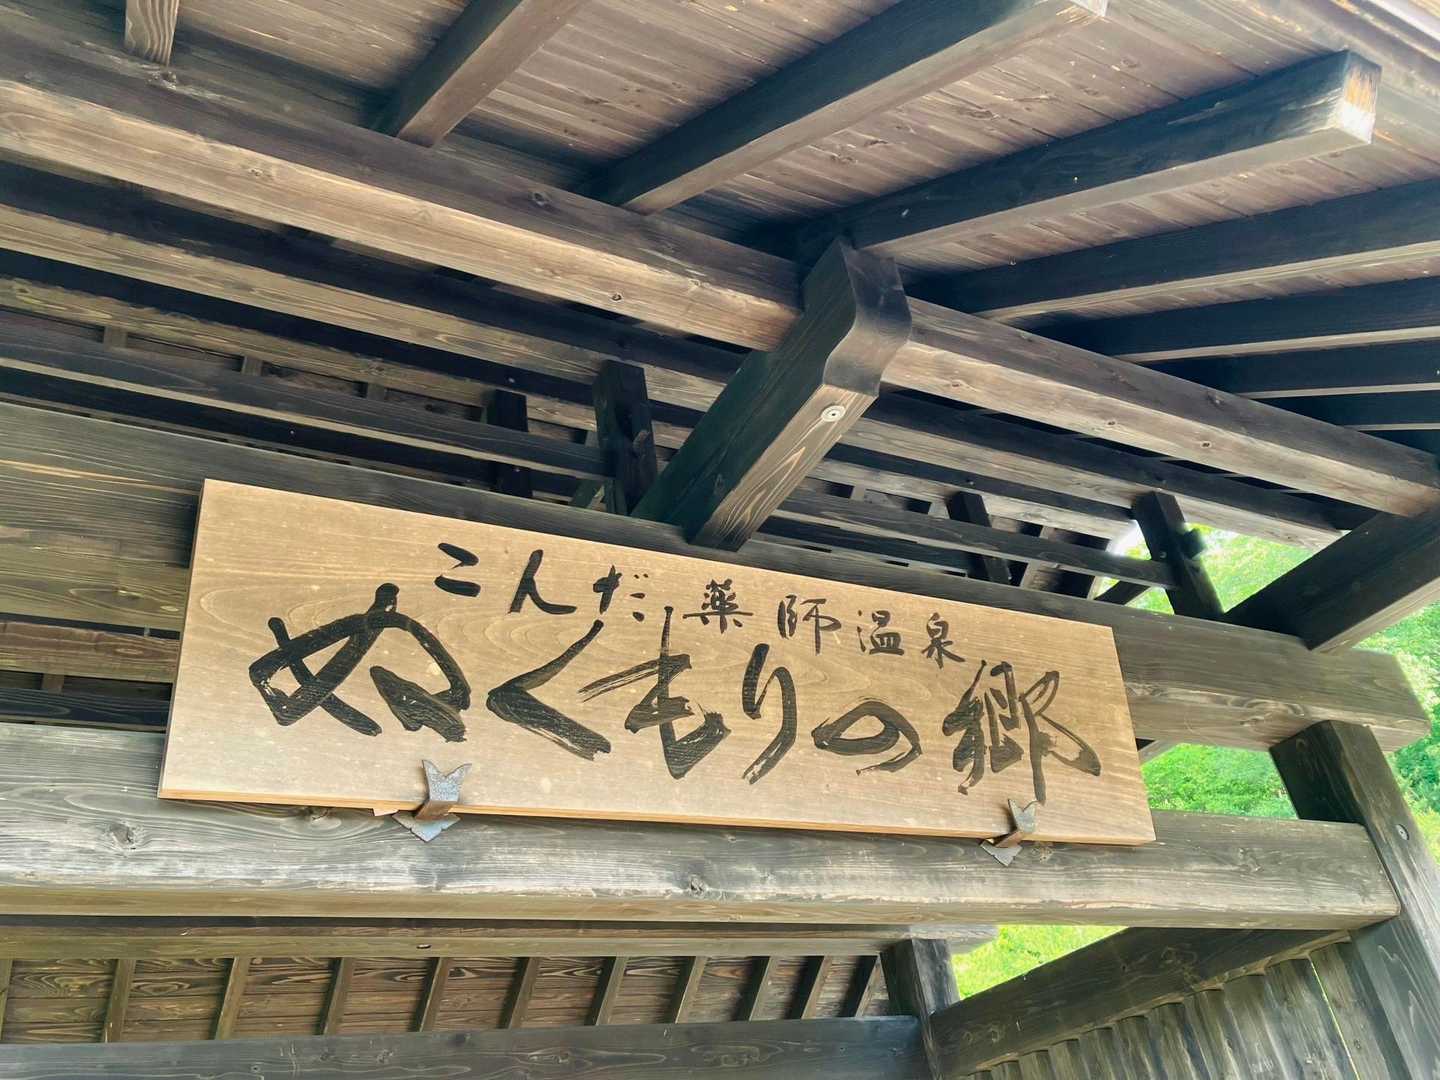 こんだ薬師温泉
ぬくもりの郷